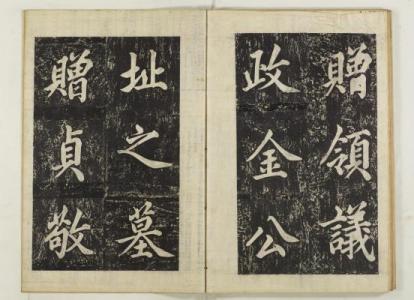 贈領議
政金公
址之墓
贈貞敬